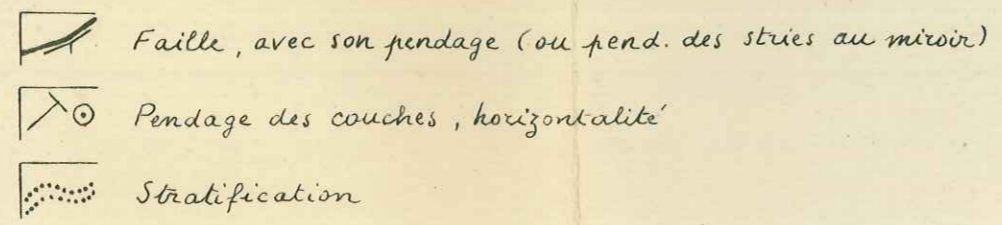 Faille, avec son pendage (ou pend. des stries au miroir)
Pendage des couches, horizontalité
Stratification